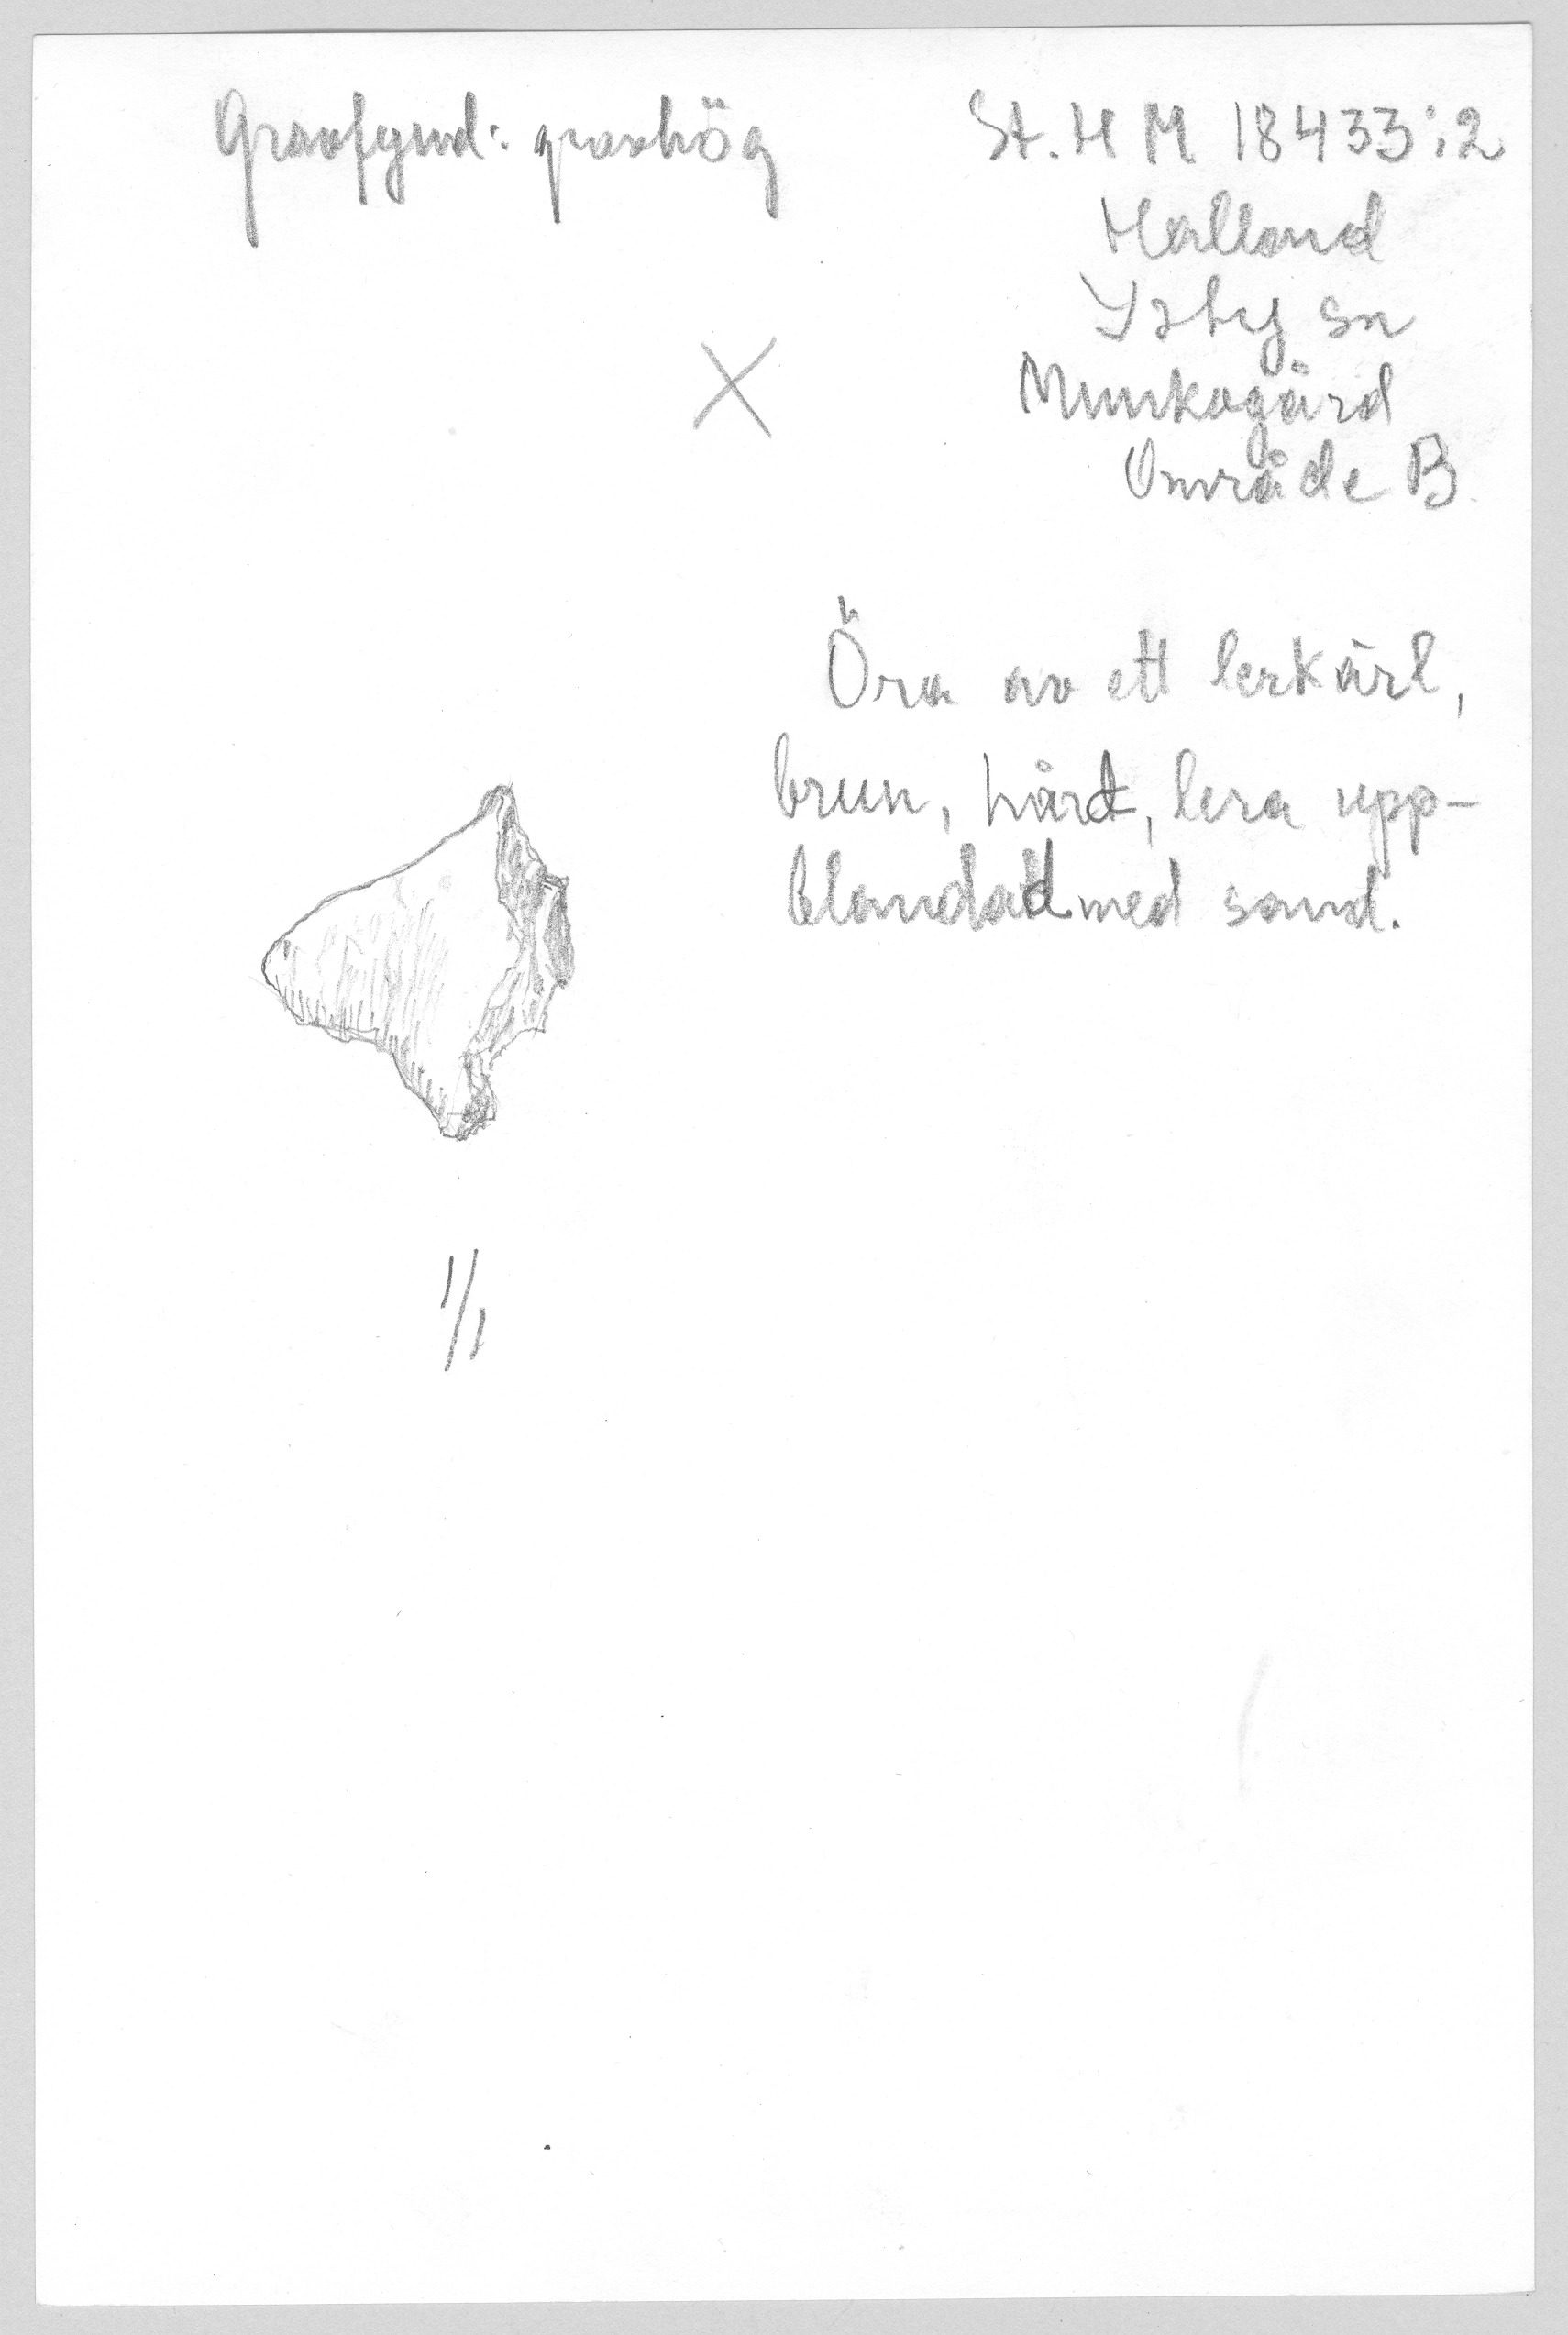 Gravfynd: gravhög
St. H M 18433:2
Halland
Ysby sn
Munkagård
Område B.
Öra av ett lerkärl,
brun, hård, lera upp-
blandad med sand.
1/1